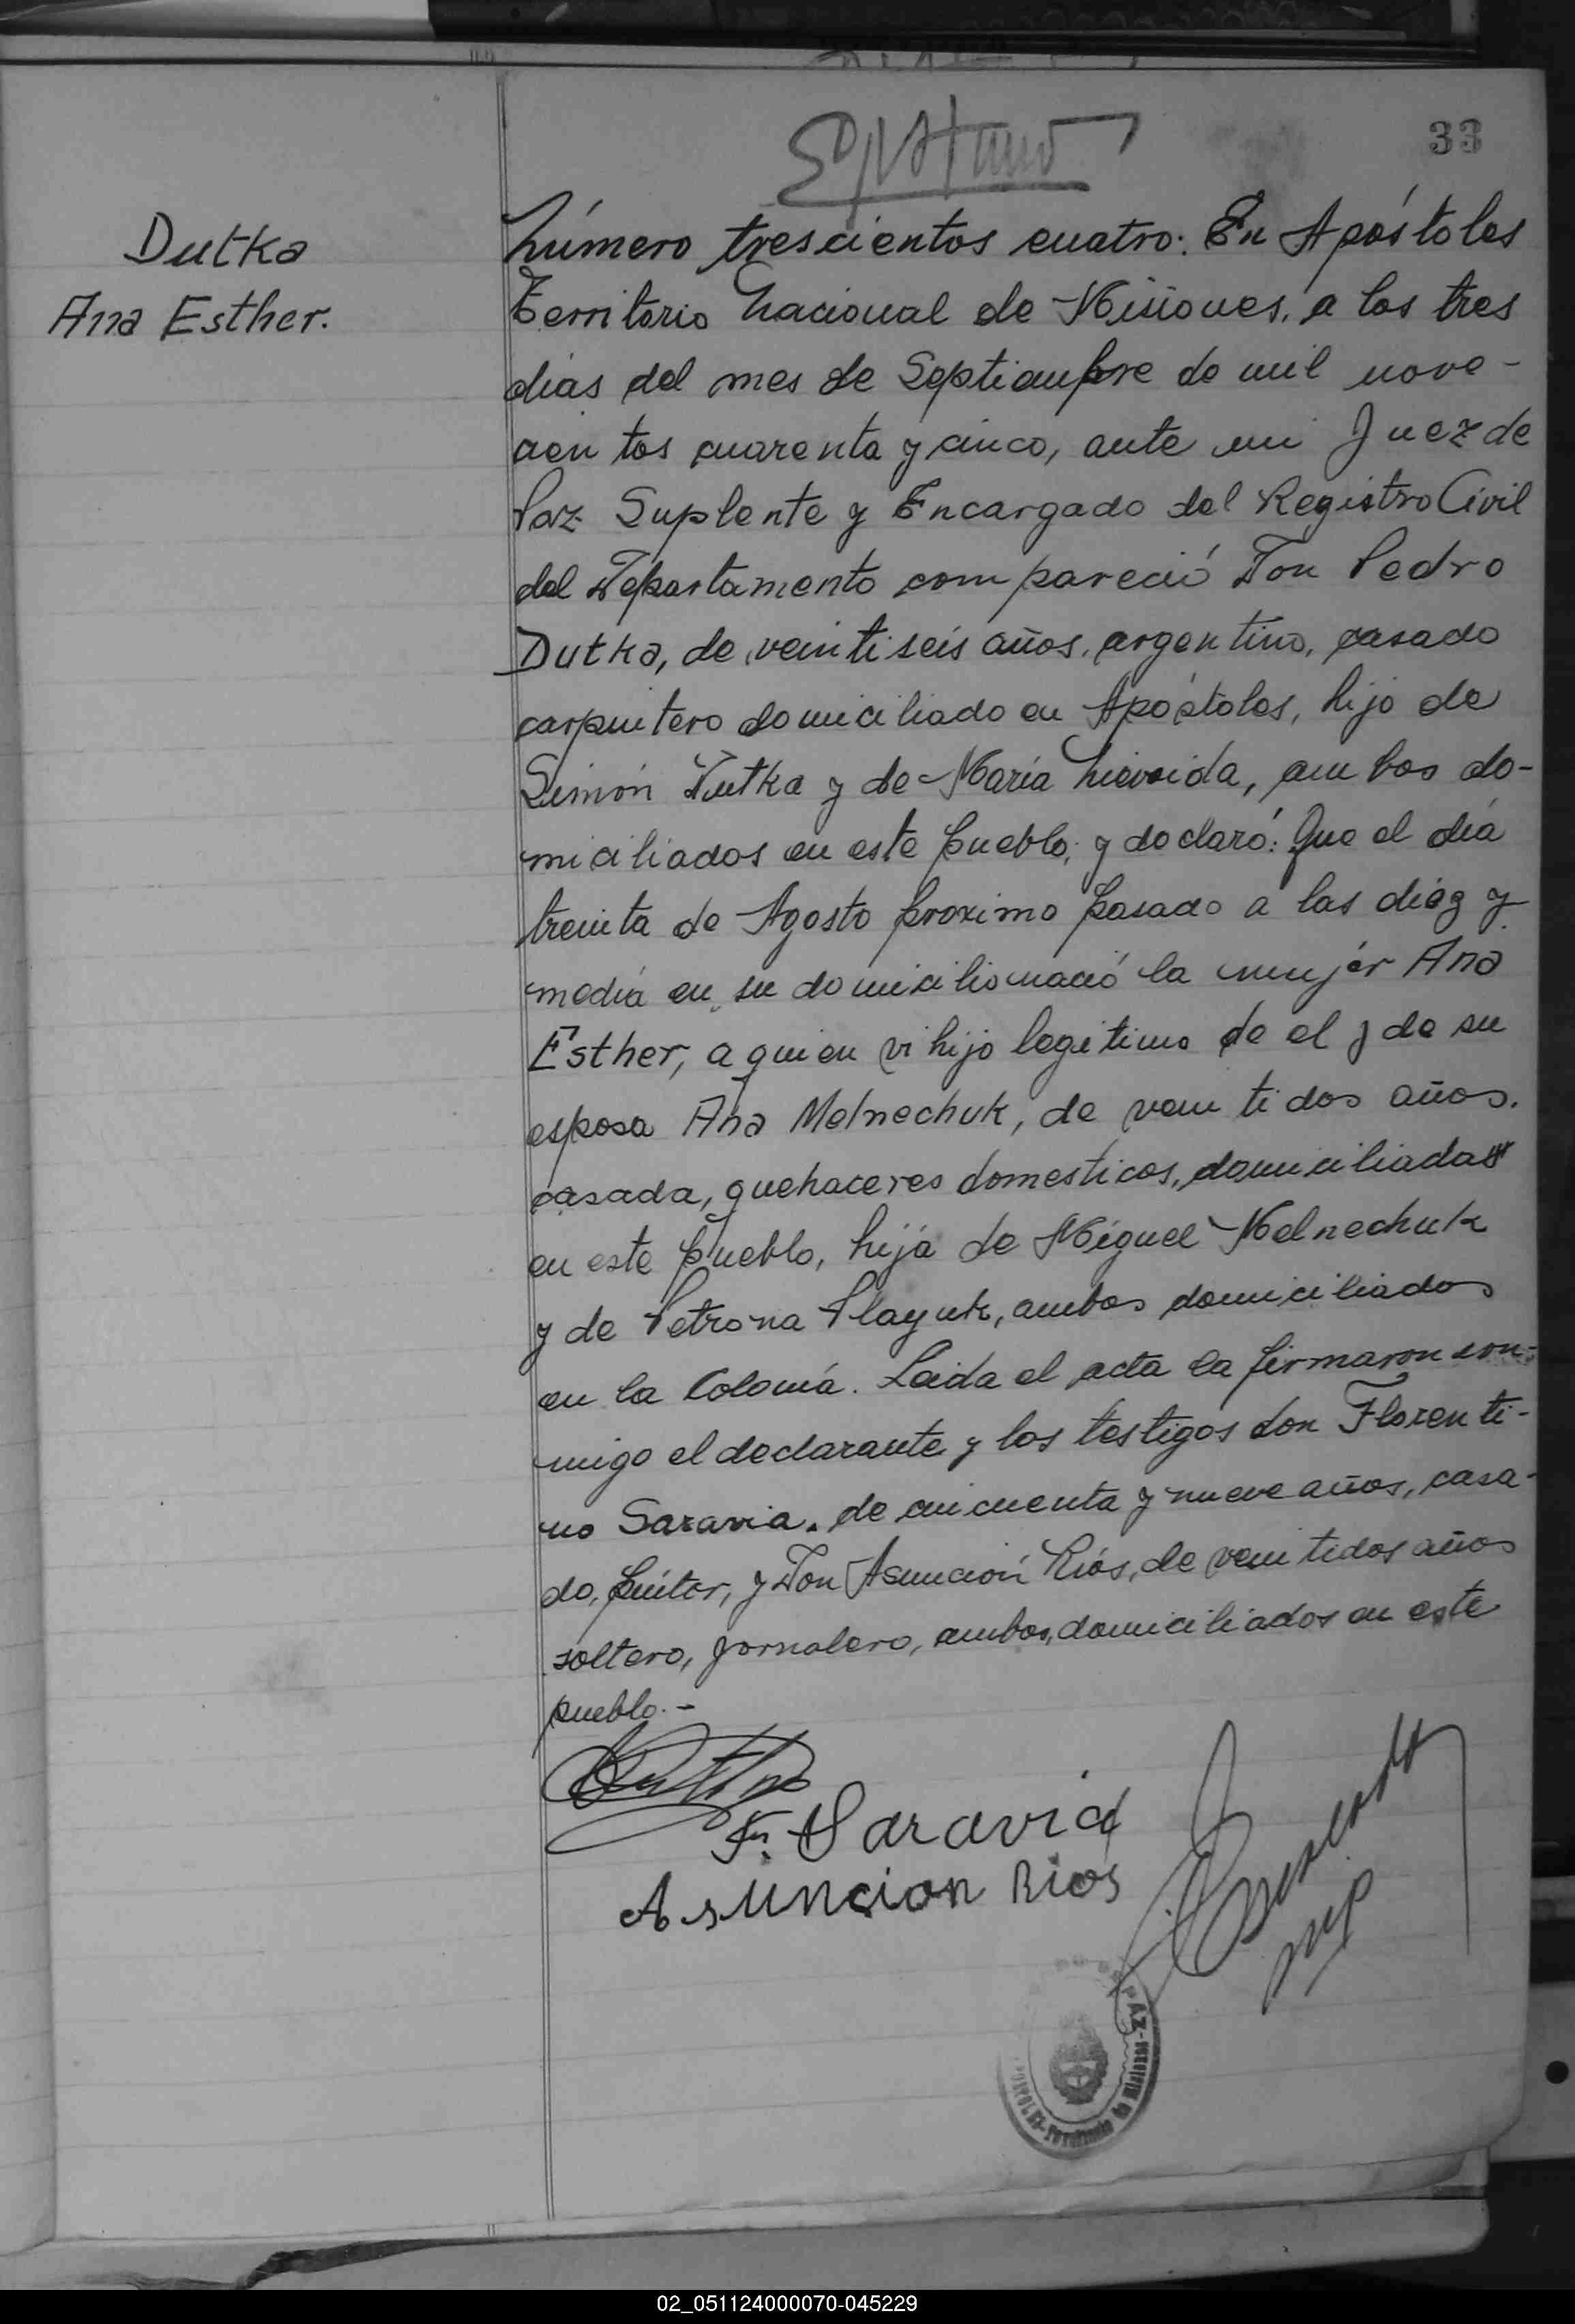 33
Dutka
Ana Esther.
Número trescientos cuatro: En Apóstoles
Territorio Nacional de Misiones, a los tres
días del mes de Septiembre de mil nove-
cientos cuarenta y cinco, ante mi Juez de
Paz Suplente y Encargado del Registro Civil
del Departamento compareció Don Pedro
Dutka, de veintiseis años, argentino, casado
carpintero domiciliado en Apóstoles, hijo de
Simón Dutka y de María, ambos do-
miciliados en este pueblo; y declaró: Que el día
treinta de Agosto proximo pasado a las diez y
media en su domicilio nació la mujer Ana
Esther, a quien vi hijo legitimo de el y de su
esposa Ana Melnechuk, de veintidos años.
casada, quehaceres domesticos, domiciliada
en este pueblo, hija de Miguel Melnechuk
y de Petrona Playuk, ambos domiciliados
en la Colonia. Leida el acta la firmaron con-
migo el declarante y los testigos don Florenti-
no Saravia, de cincuenta y nueve años, casa-
do, pintor, y Don Asunción Ríos, de veintidos años
soltero, jornalero, ambos domiciliados en este
pueblo.-
F. Saravia
Asuncion Rios
02_051124000070-045229